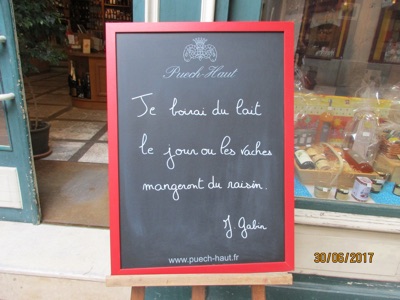 Puech-Haut
Je boirai du lait
le jour où les vaches
mangeront du raisin.
J Gabin
www.puech-haut.fr
30/06/2017